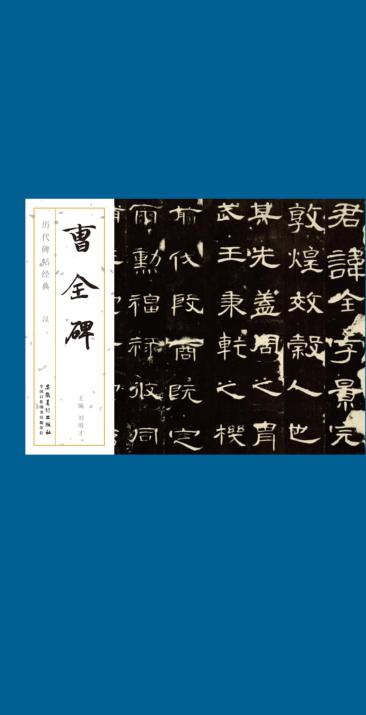 君諱全字景完
敦煌效穀人也
其先蓋周之胄
武王秉乾之機
翦伐殷商既定
爾勳福祿攸同
曹全碑
主编 刘明才
历代碑帖经典 汉
安徽美术出版社
全国百佳图书出版单位